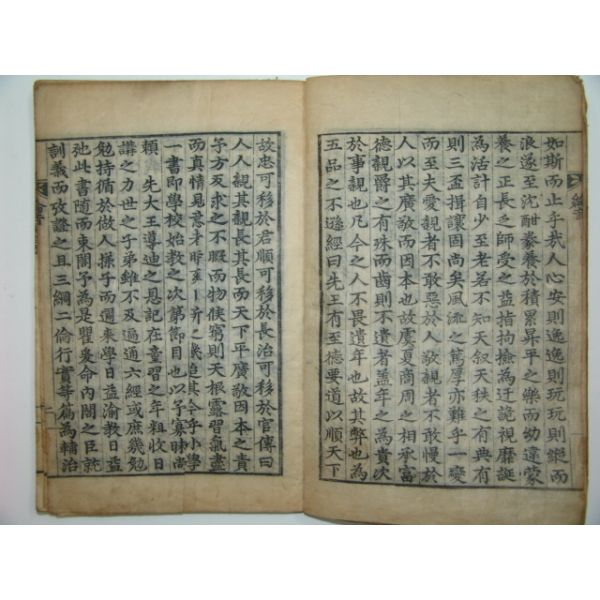 如斯而止乎哉人心安則逸逸則玩玩則而
浪遂至沈酣豢養於積累昇平之樂而幼違蒙
養之正長乏師受之益指拘檢為迂詭視靡誕
為活計自少至老若不知天叙天秩之有典有
則三盃揖讓固尚矣風流之篤厚亦難乎一變
而至夫愛親者不敢惡於人敬親者不敢慢於
人以其廣敬而因本也故虞夏商周之相承富
德親爵之有殊而齒則不遺者盖年之為貴次
於事親也凡今之人不畏遺年也故其弊也為
五品之不遜經曰先王有至德要道以順天下
故忠可移於君順可移於長治可移於官傳曰
人人親其親長其長而天下平廣敬因本之貴
子方反求之不暇而物倏窮則天根露習氣盡
而真情見意其今乎小學
一書即學校始教之次第節目也以予寡昧尚
賴 先大王導迪之恩記在童習之年粗收日
講之力世之子弟雖不及遍通六經或庶幾勉
勉持循於做人㨾子而邇來學日益渝教日益
弛此書隨而束閣予為是瞿爰命內閣之臣就
訓義而攷證之且三綱二倫行實等篇為輔治